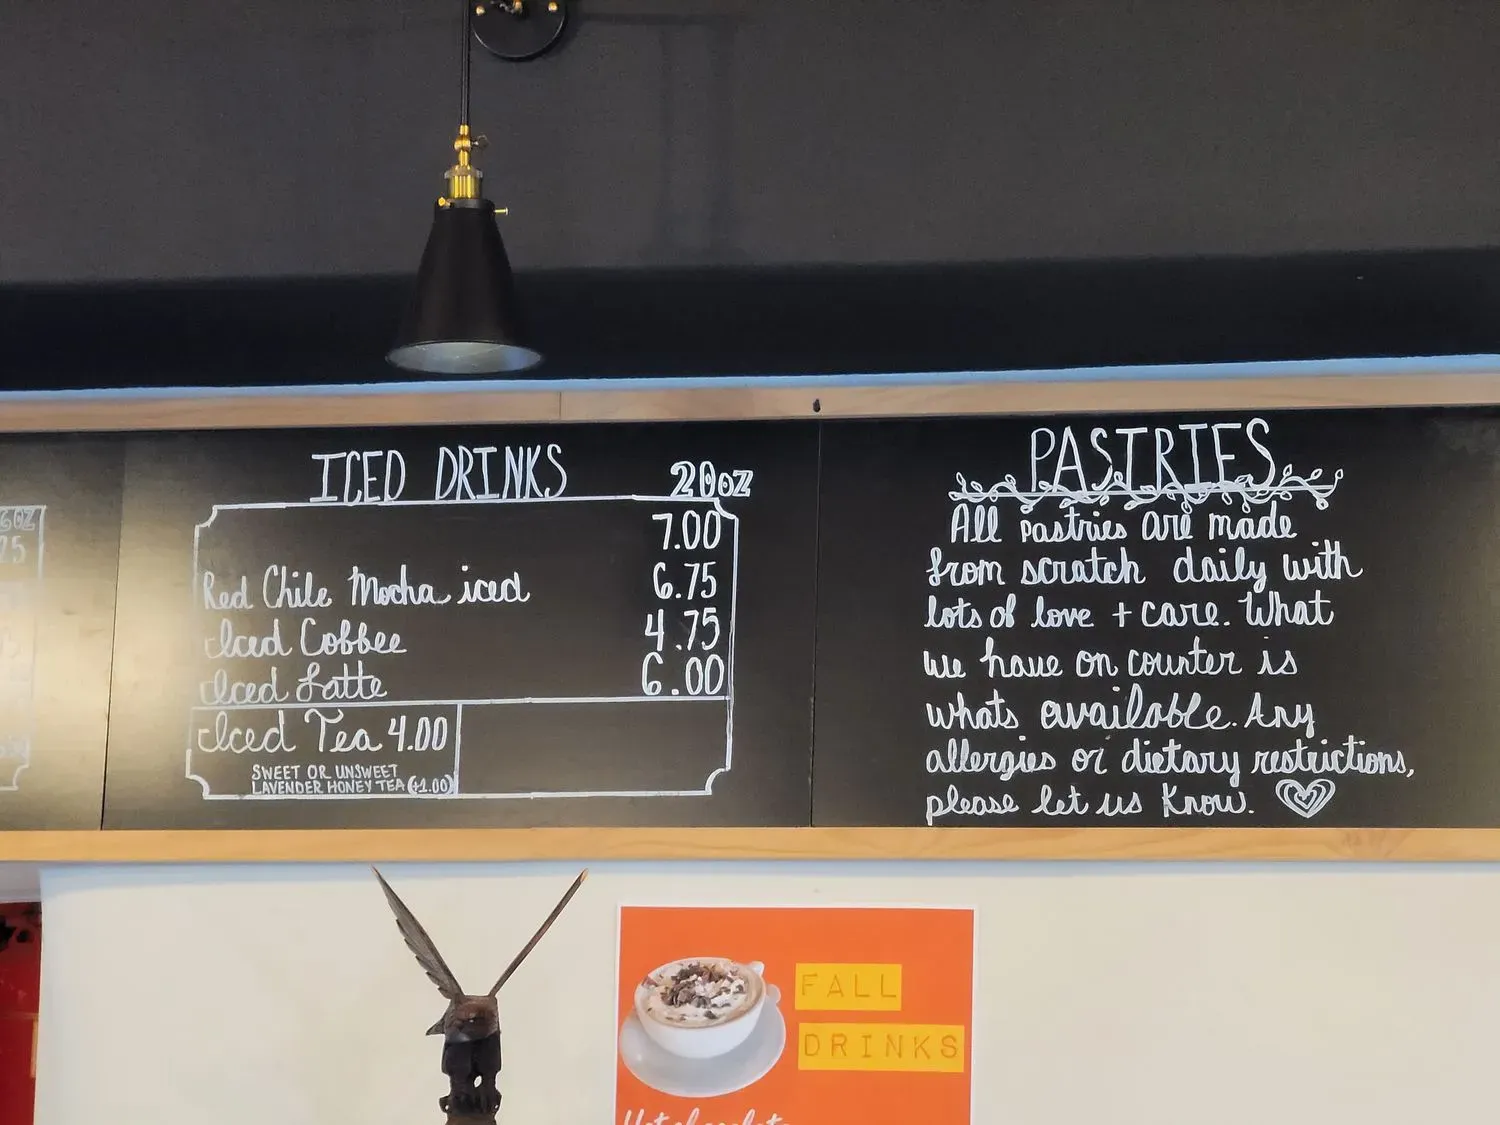 ICED DRINKS 20oz
7.00
Red Chile Mocha iced 6.75
Iced Coffee 4.75
Iced Latte 6.00
Iced Tea 4.00
SWEET OR UNSWEET
LAVENDER HONEY TEA (+1.00)
PASTRIES
All pastries are made
from scratch daily with
lots of love + care. What
we have on counter is
whats available. Any
allergies or dietary restrictions,
please let us know.
FALL
DRINKS